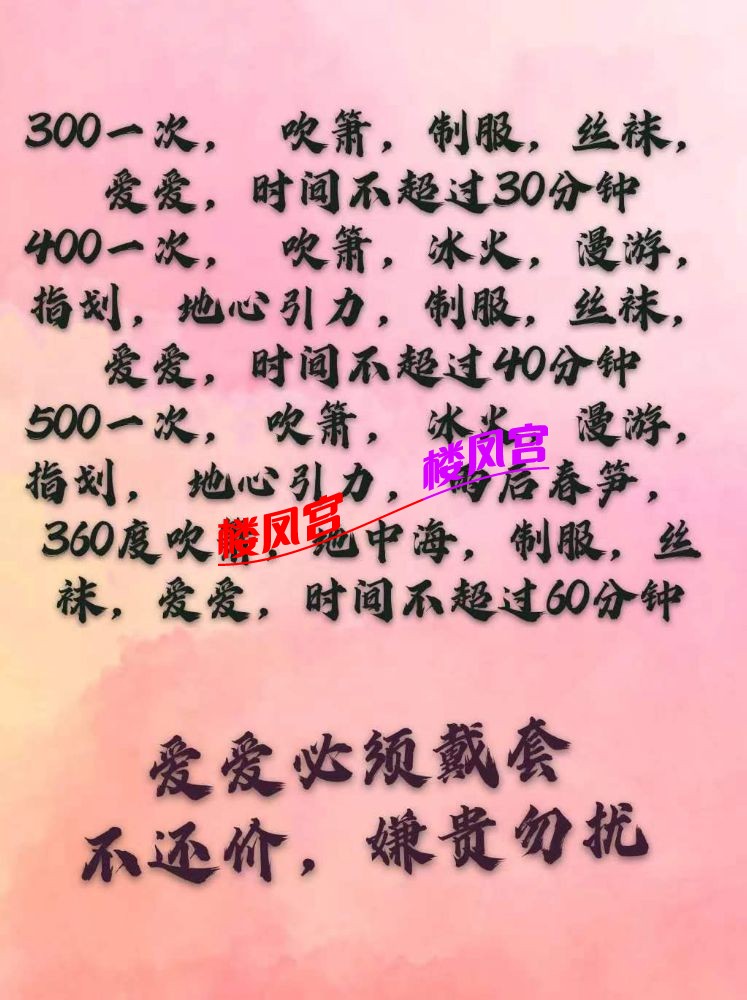 300一次， 吹箫，制服，丝袜，
爱爱，时间不超过30分钟
400一次， 吹箫，冰火，漫游，
指划，地心引力，制服，丝袜，
爱爱，时间不超过40分钟
500一次， 吹箫，冰火，漫游，
指划，地心引力，后春笋，
360度吹，地中海，制服，丝
袜，爱爱，时间不超过60分钟
楼凤宫
楼凤宫
爱爱必须戴套
不还价，嫌贵勿扰